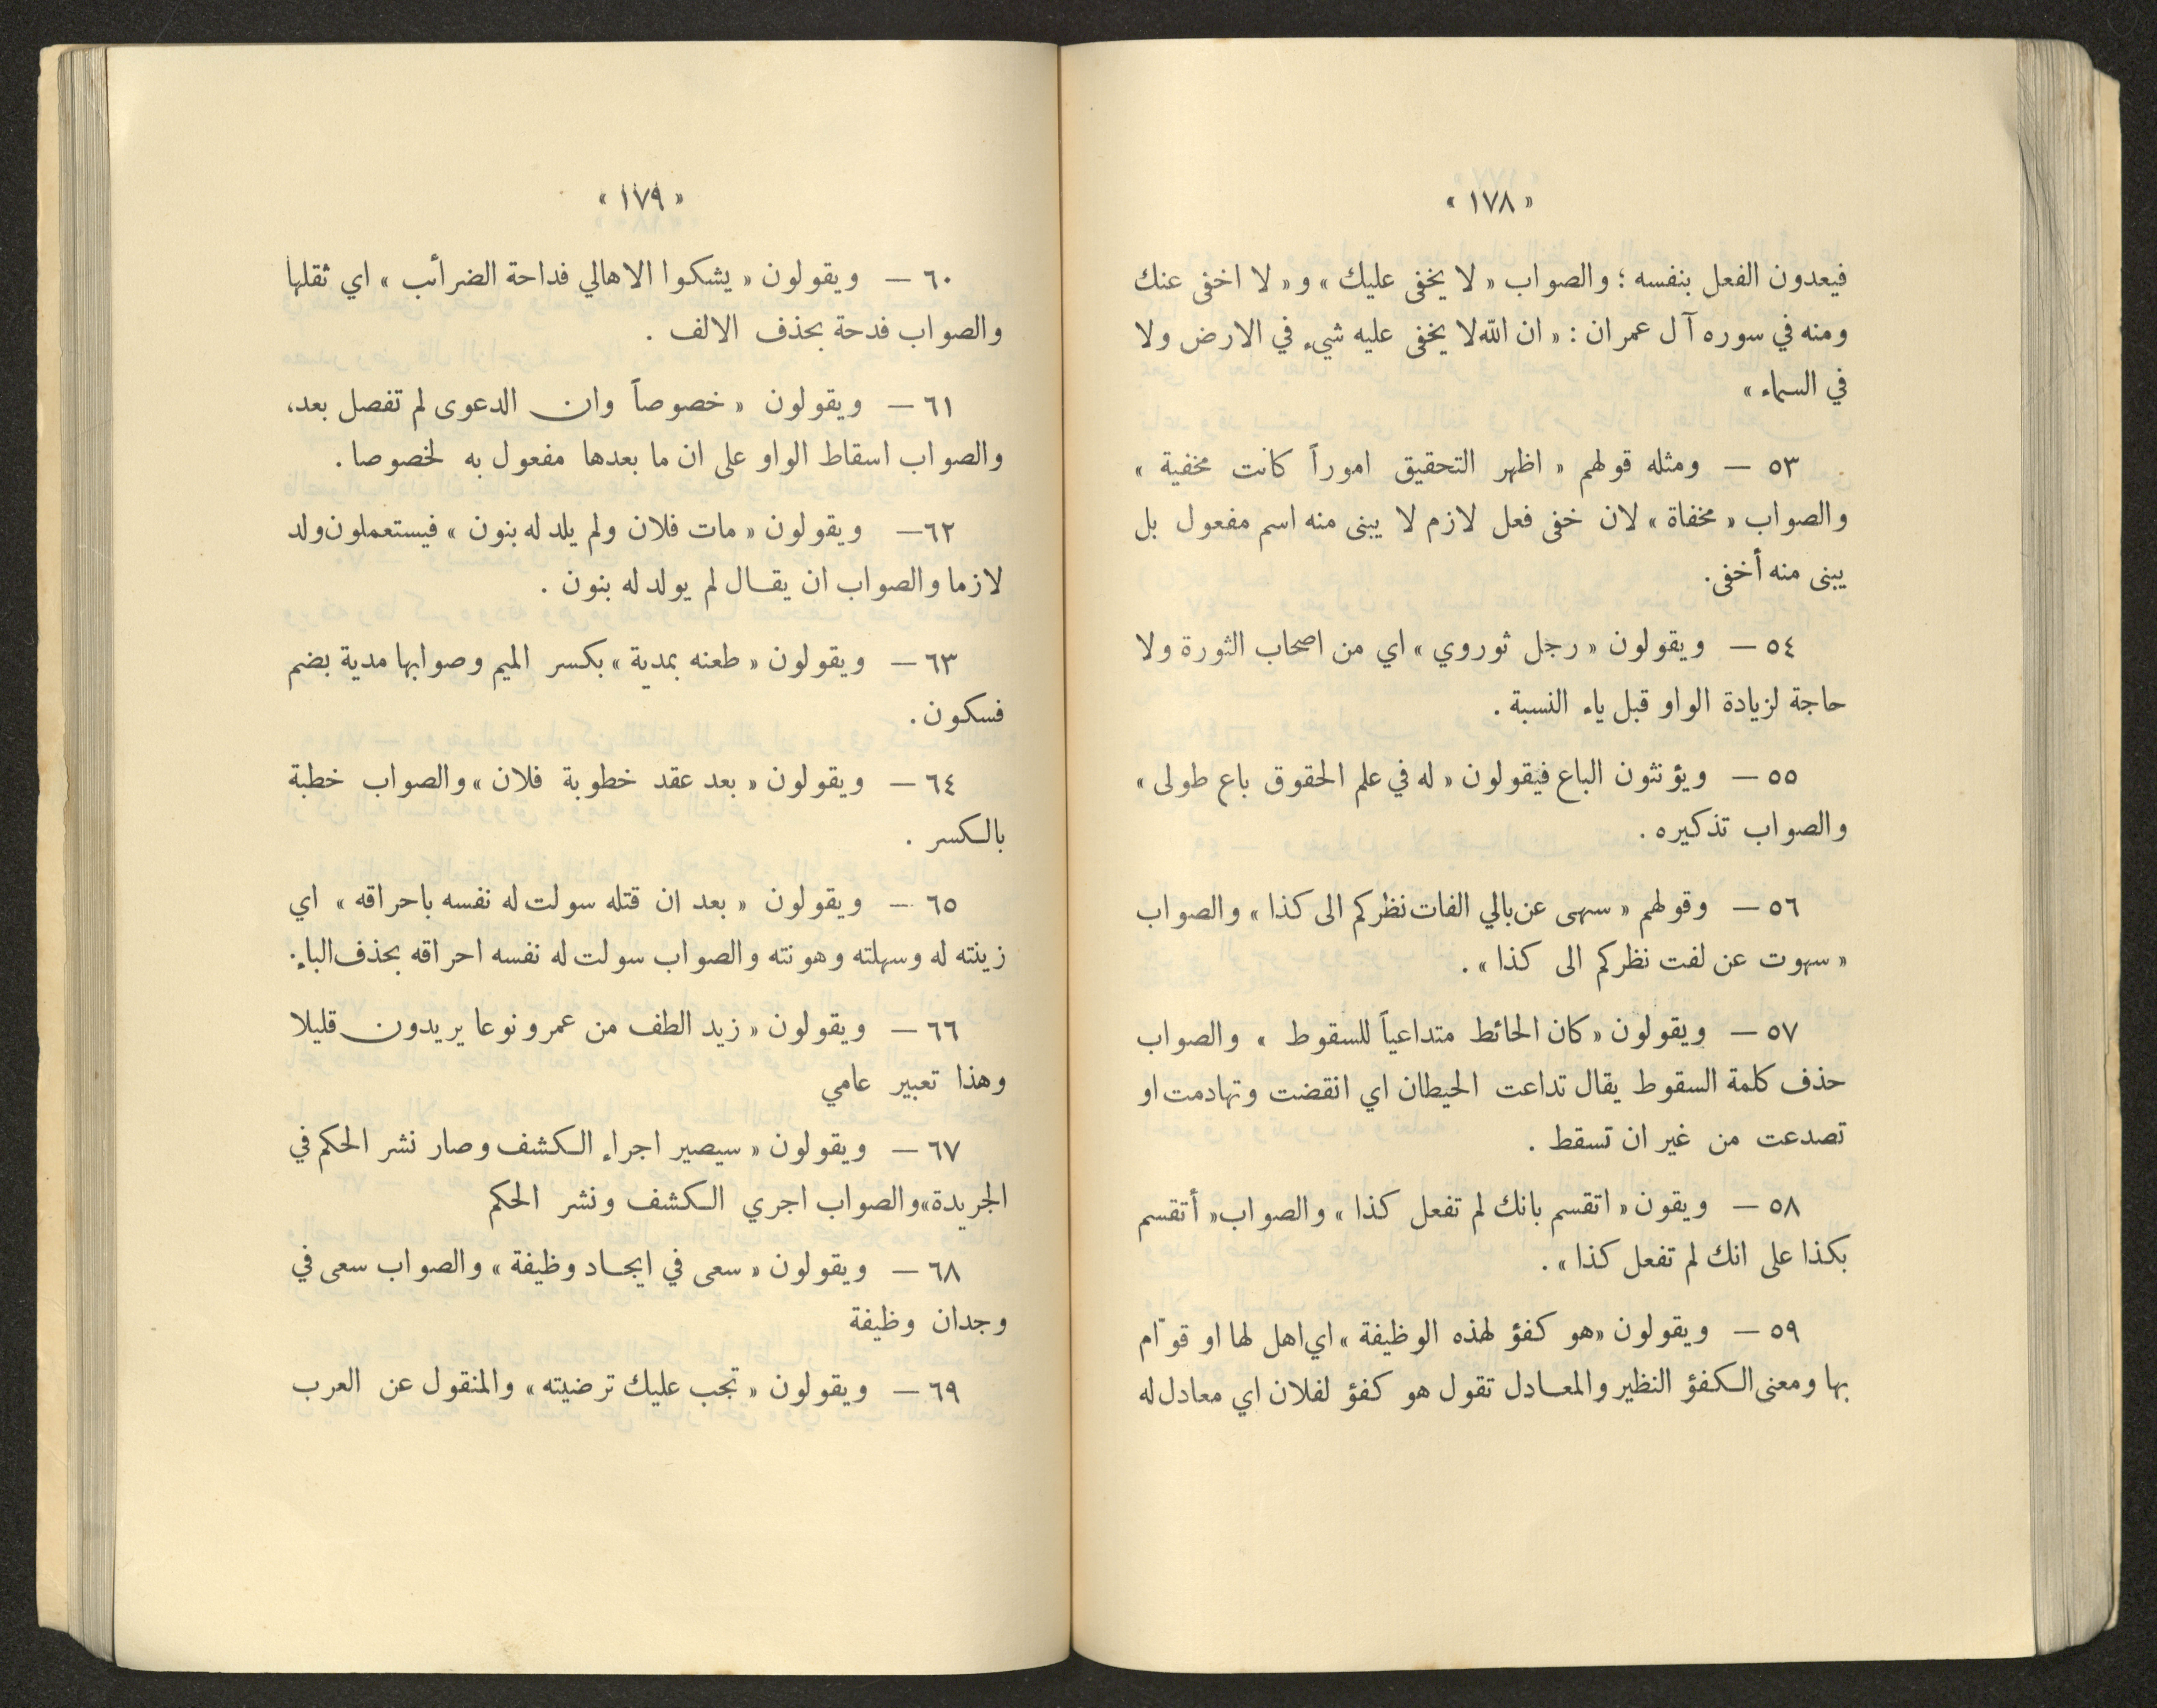 « ١٧٨ »
فيعدون الفعل بنفسه ؛ والصواب « لا يخفى عليك » و « لا اخفى عنك
ومنه في سوره آل عمران : « ان الله لا يخفى عليه شيء في الارض ولا
في السماء »
٥٣ — ومثله قولهم « اظهر التحقيق اموراً كانت مخفية »
والصواب « مخفاة » لان خفى فعل لازم لا يبنى منه اسم مفعول بل
يبنى منه أخفى.
٥٤ — ويقولون « رجل ثوروي » اي من اصحاب الثورة ولا
حاجة لزيادة الواو قبل ياء النسبة .
٥٥ — ويؤنثون الباع فيقولون « له في علم الحقوق باع طولى »
والصواب تذكيره .
٥٦ — وقولهم « سهى عن بالي الفات نظركم الى كذا » والصواب
« سهوت عن لفت نظركم الى كذا » .
٥٧ — ويقولون « كان الحائط متداعياً للسقوط » والصواب
حذف كلمة السقوط يقال تداعت الحيطان اي انقضت وتهادمت او
تصدعت من غير ان تسقط .
٥٨ — ويقون « اتقسم بانك لم تفعل كذا » والصواب « أتقسم
بكذا على انك لم تفعل كذا » .
٥٩ — ويقولون « هو كفؤ لهذه الوظيفة » اي اهل لها او قوّام
بها ومعنى الكفؤ النظير والمعادل تقول هو كفؤ لفلان اي معادل له
« ١٧٩ »
٦٠ — ويقولون « يشكوا الاهالي فداحة الضرائب » اي ثقلها
والصواب فدحة بحذف الالف .
٦١ — ويقولون « خصوصاً وان الدعوى لم تفصل بعد،
والصواب اسقاط الواو على ان ما بعدها مفعول به لخصوصا .
٦٢— ويقولون « مات فلان ولم يلد له بنون » فيستعملون ولد
لازما والصواب ان يقال لم يولد له بنون .
٦٣ — ويقولون « طعنه بمدية » بكسر الميم وصوابها مدية بضم
فسكون .
٦٤ — ويقولون « بعد عقد خطوبة فلان » والصواب خطبة
بالكسر .
٦٥ — ويقولون « بعد ان قتله سولت له نفسه باحراقه » اي
زينته له وسهلته وهونته والصواب سولت له نفسه احراقه بحذف الباء.
٦٦ — ويقولون « زيد الطف من عمرو نوعا يريدون قليلا
وهذا تعبير عامي
٦٧ — ويقولون « سيصير اجراء الكشف وصار نشر الحكم في
الجريدة» والصواب اجري الكشف ونشر الحكم
٦٨ — ويقولون « سعى في ايجاد وظيفة » والصواب سعى في
وجدان وظيفة
٦٩ — ويقولون « تجب عليك ترضيته » والمنقول عن العرب